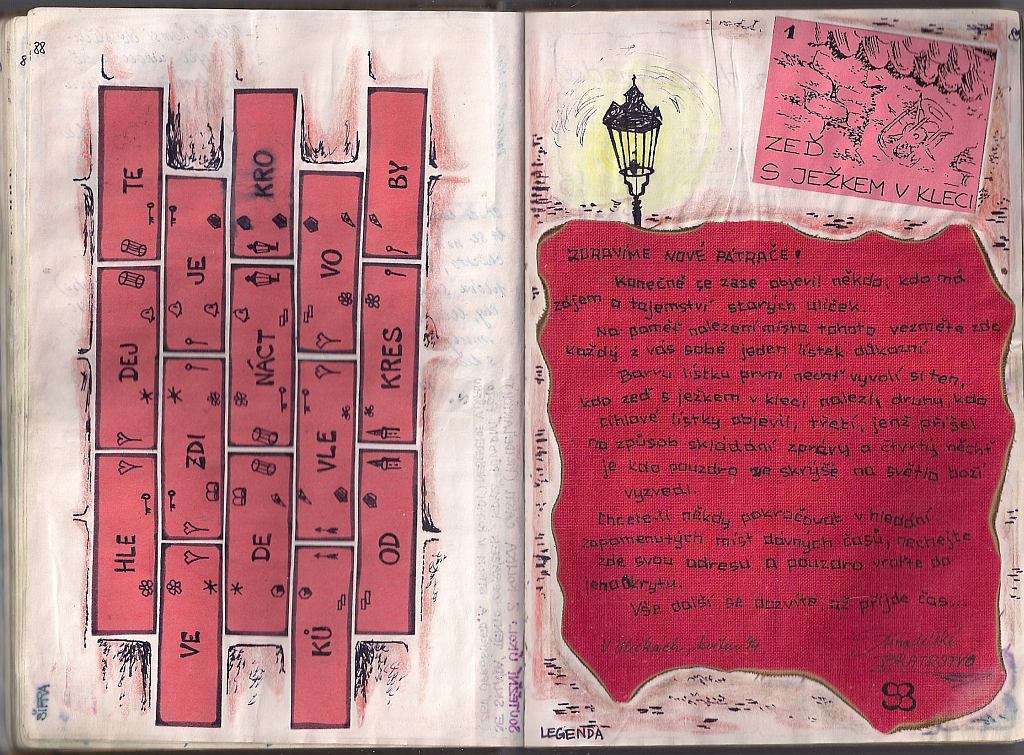 88
HLE DEJ TE
VE ZDI JE
DE NÁCT KRO
KŮ VLE VO
OD KRES BY
ŠIFRA
1
ZEĎ
S JEŽKEM V KLECI
ZDRAVÍME NOVÉ PÁTRAČE!
Konečně se zase objevil někdo, kdo má
zájem o tajemství starých uliček.
Na paměť nalezení místa tohoto vezměte zde
každý z vás sobě jeden lístek důkazní.
Barvu lístku první nechť vyvolí si ten,
kdo zeď s ježkem v kleci nalezl, druhý, kdo
cihlové lístky objevil, třetí, jenž přišel
na způsob skládání zprávy a čtvrtý nechť
je kdo pouzdro ze skrýše na světlo boží
vyzvedl.
Chcete-li někdy pokračovat v hledání
zapomenutých míst dávných časů, nechejte
zde svou adresu a pouzdro vraťte do
jeho úkrytu.
Vše další se dozvíte až přijde čas...
BRATRSTVO
LEGENDA